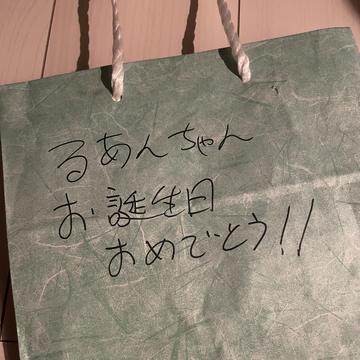 るあんちゃん
お誕生日
おめでとう!!